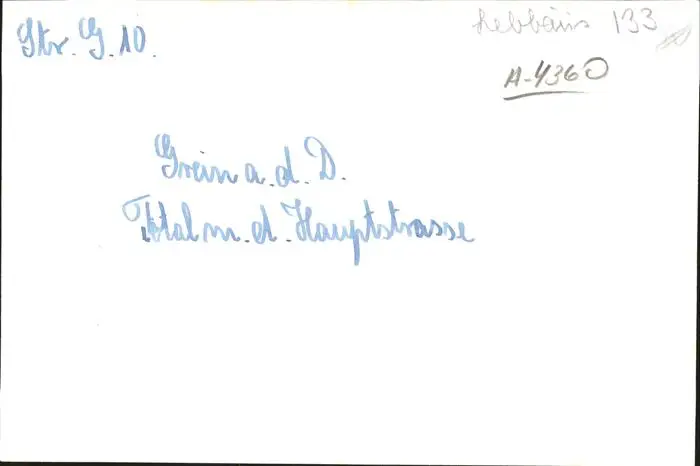 Str. G. 10.
133
A-4360
Grein a. d. D.
Total m. d. Hauptstrasse